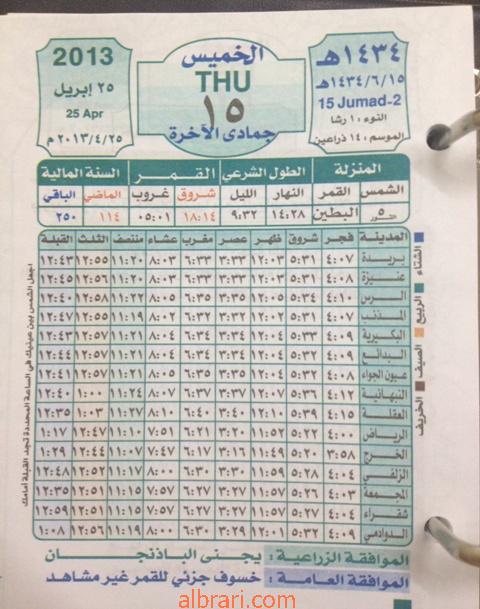 2013
٢٥ ابريل
25 Apr
٢٠١٣/٤/٢٥م
الخميس
THU
١٥
جمادى الآخرة
١٤٣٤هـ
١٤٣٤/٦/١٥هـ
15 Jumad-2
النوء: ١ رشا
الموسم: ١٤ ذراعين
المنزلة الطول الشرعي القمر السنة المالية
الشمس القمر النهار الليل شروق غروب الماضي الباقي
٥ البطين ١٤:٢٨ ٩:٣٢ ١٨:١٤ ٠٥:٠١ ١١٤ ٢٥٠
المدينة فجر شروق ظهر عصر مغرب عشاء منتصف الثلث القبلة
بريدة ٤:٠٧ ٥:٣١ ١٢:٠٣ ٣:٣٣ ٦:٣٣ ٨:٠٣ ١١:٢٠ ١٢:٥٥ ١٢:٤٣
عنيزة ٤:٠٨ ٥:٣١ ١٢:٠٣ ٣:٣٣ ٦:٣٣ ٨:٠٣ ١١:٢٠ ١٢:٥٦ ١٢:٤٥
الرس ٤:١٠ ٥:٣٤ ١٢:٠٥ ٣:٣٥ ٦:٣٥ ٨:٠٥ ١١:٢٢ ١٢:٥٨ ١٢:٤٠
المذنب ٤:٠٧ ٥:٣١ ١٢:٠٢ ٣:٣٢ ٦:٣٢ ٨:٠٢ ١١:٢٠
البكيرية ٤:٠٩ ٥:٣٣ ١٢:٠٤ ٣:٣٤ ٦:٣٤ ٨:٠٤ ١١:٢١ ١٢:٥٧ ١٢:٤٣
البدائع ٤:٠٩ ٥:٣٢ ١٢:٠٤ ٣:٣٤ ٦:٣٤ ٨:٠٤ ١١:٢١ ١٢:٥٧ ١٢:٤٤
عيون الجواء ٤:٠٨ ٥:٣٢ ١٢:٠٤ ٣:٣٥ ٦:٣٥ ٨:٠٥ ١١:٢١ ١٢:٥٧ ١٢:٤١
النبهانية ٤:١٢ ٥:٣٦ ١٢:٠٧ ٣:٣٧ ٦:٣٧ ٨:٠٧ ١١:٢٤ ١:٠٠ ١٢:٤٠
العقلة ٤:١٥ ٥:٣٩ ١٢:١٠ ٣:٤٠ ٦:٤٠ ٨:١٠ ١١:٢٧ ١:٠٣ ١٢:٣٥
الرياض ٤:٠٠ ٥:٢٢ ١١:٥٢ ٣:٢٠ ٦:٢١ ٧:٥١ ١١:١٠ ١٢:٤٧ ١:١٧
الخرج ٣:٥٨ ٥:٢٠ ١١:٤٩ ٣:١٦ ٦:١٧ ٧:٤٧ ١١:٠٧ ١٢:٤٤ ١:٢٩
الزلفي ٤:٠٤ ٥:٢٨ ١١:٥٩ ٣:٣٠ ٦:٣٠ ٨:٠٠ ١١:١٧ ١٢:٥٢ ١٢:٤٨
المجمعة ٤:٠٣ ٥:٢٦ ١١:٥٧ ٣:٢٧ ٦:٢٧ ٧:٥٧ ١١:١٥ ١٢:٥١ ١٢:٣٥
شقراء ٤:٠٤ ٥:٢٧ ١١:٥٧ ٣:٢٧ ٦:٢٧ ٧:٥٧ ١١:١٥ ١٢:٥١ ١٢:٥٩
الدوادمي ٤:٠٩ ٥:٣٢ ١٢:٠١ ٣:٢٩ ٦:٣٠ ٨:٠٠ ١١:١٩ ١٢:٥٦ ١:٠٨
الشتاء
الربيع
الصيف
الخريف
اجعل الشمس بين عينيك في الساعة المحددة تجد القبلة أمامك
الموافقة الزراعية: يجنى الباذنجان
الموافقة العامة: خسوف جزئي للقمر غير مشاهد
albrari.com